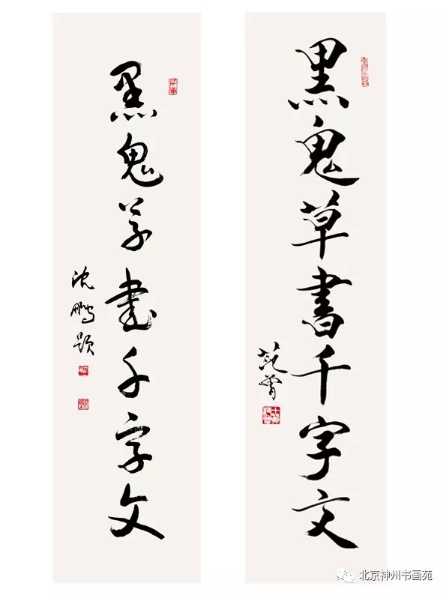 黑鬼草書千字文
范曾
黑鬼草書千字文
沈鹏题
北京神州书画苑